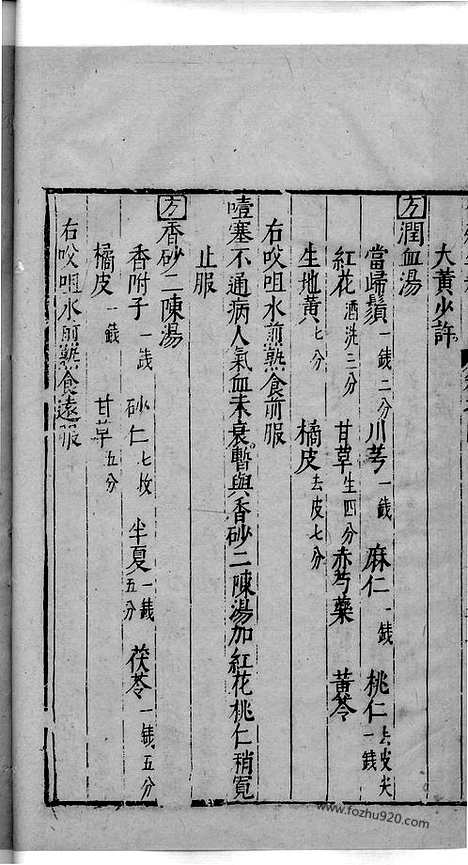 大黄少許
方潤血湯
當歸鬚一錢二分 川芎一錢 麻仁一錢 桃仁去皮尖一錢
紅花酒洗三分 甘草生四分 赤芍藥 黃芩
生地黃七分 橘皮去皮七分
右㕮咀水煎熟食前服
噎塞不通病人氣血未衰暫與香砂二陳湯加紅花桃仁稍寬
止服
方香砂二陳湯
香附子一錢 砂仁七枚 半夏一錢五分 茯苓一錢五分
橘皮一錢 甘草五分
右㕮咀水煎熟食遠服
www.fozhu920.com